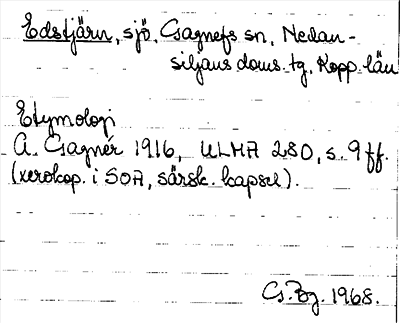 Edstjärn, sjö, Gagnefs sn, Nedan-
siljans doms. tg, Kopp. län
Etymologi
A. Gagnér 1916, ULMA 280, s. 9 ff.
(xerokop. i SOA, särsk. kapsel).
Cs. Bg. 1968.